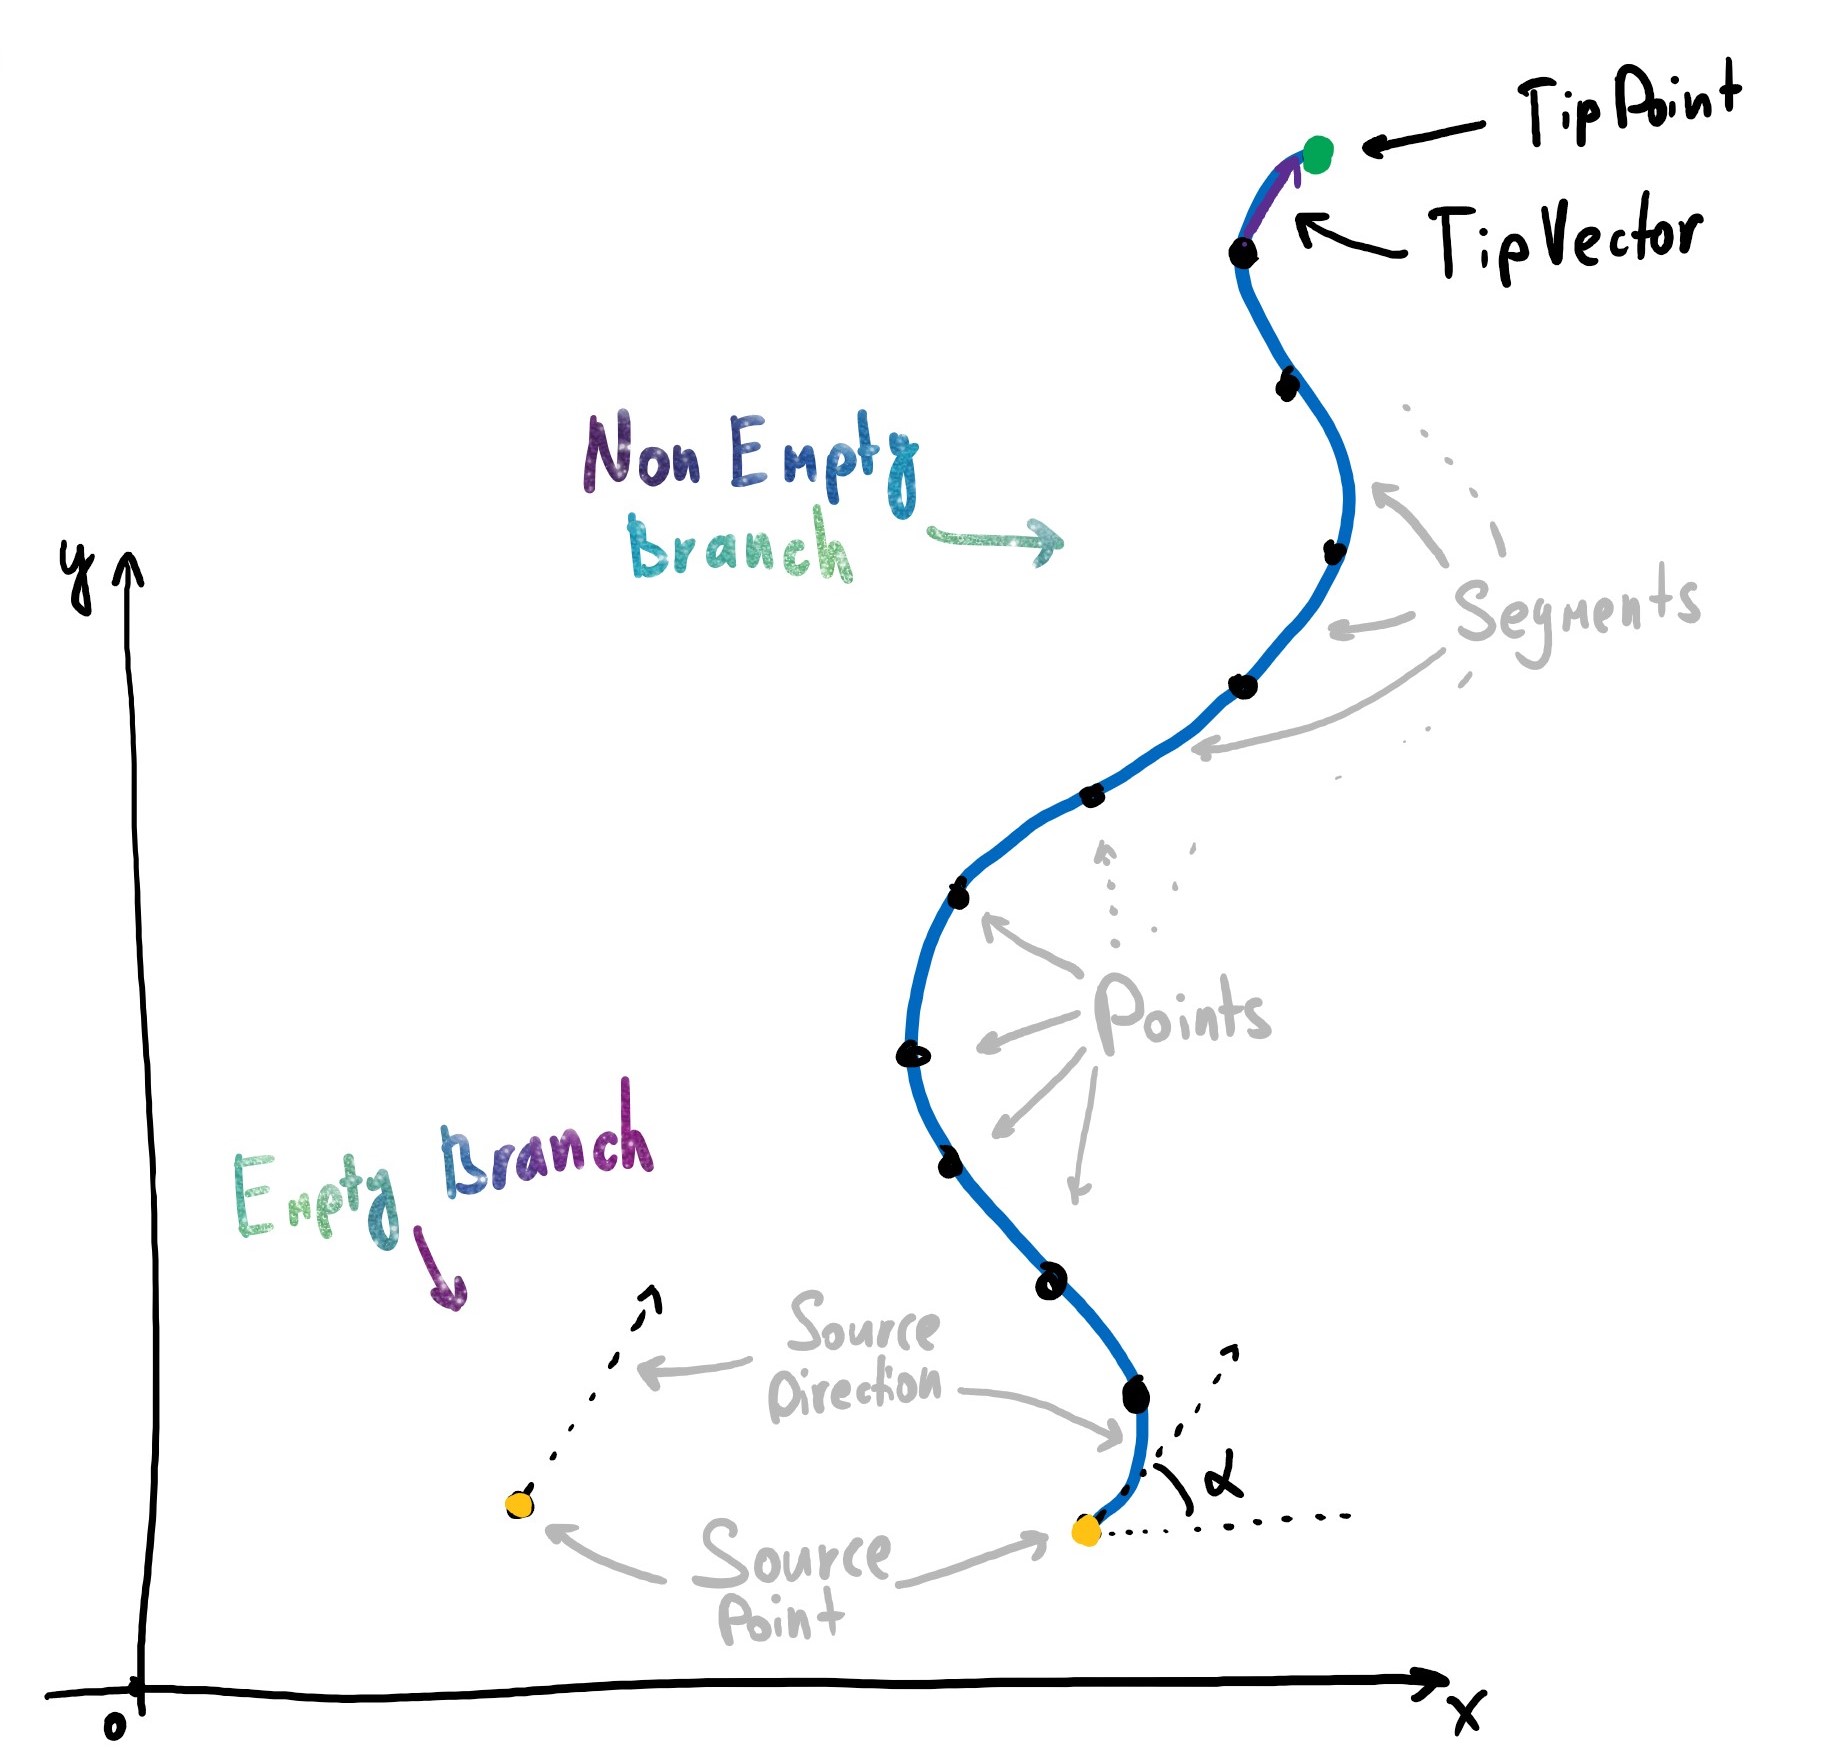 TipPoint
TipVector
Non Empty
Branch
y
Segments
Points
Empty Branch
Source
Direction
α
Source
Point
0
x